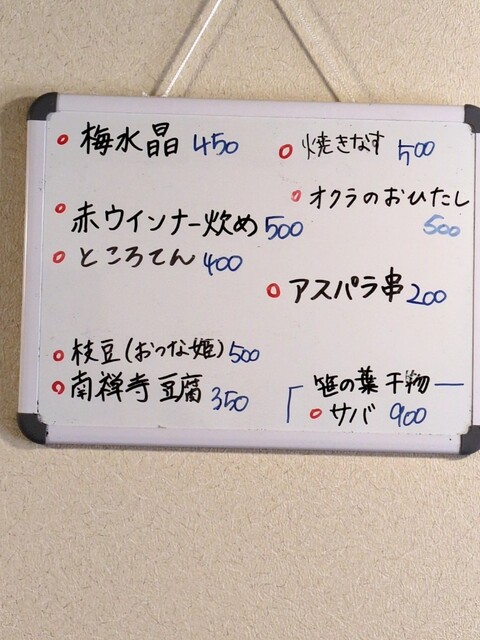 梅水晶 450
赤ウインナー炒め 500
ところてん 400
枝豆(おつな姫) 500
南禅寺豆腐 350
焼きなす 500
オクラのおひたし
500
アスパラ串 200
笹の葉 干物
サバ 900